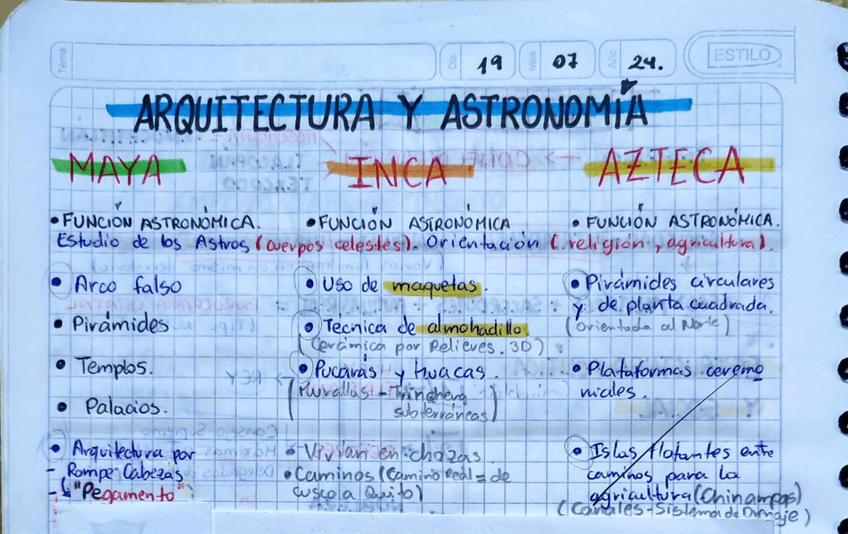 Tema
Día 19 Mes 07 Año 24.
ESTILO
ARQUITECTURA Y ASTRONOMÍA
MAYA
• FUNCIÓN ASTRONÓMICA.
INCA
• FUNCIÓN ASTRONÓMICA
AZTECA
• FUNCIÓN ASTRONÓMICA.
Estudio de los Astros (cuerpos celestes). Orientación (religión, agricultura).
• Arco falso
• Pirámides
• Templos.
• Palacios.
• Arquitectura por
- Rompe Cabezas
- ↳ "Pegamento"
• Uso de maquetas.
• Técnica de almohadillo.
(Cerámica por Relieves. 3D)
• Pucarás y Huacas.
(Murallas - Trinchera
subterráneas)
• Vivían en chozas.
• Caminos (Camino Real = de
cusco a Quito)
• Pirámides circulares
y de planta cuadrada.
(Orientada al Norte)
• Plataformas ceremo
niales.
• Islas flotantes entre
caminos para la
agricultura (Chinampas)
(Canales-Sistema de Drenaje)